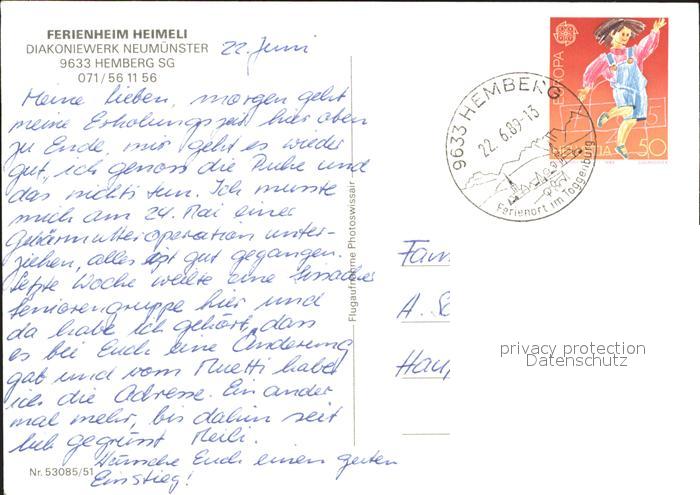 FERIENHEIM HEIMELI
DIAKONIEWERK NEUMÜNSTER
9633 HEMBERG SG
071/56 11 56
22. Juni
Meine Lieben, morgen geht
meine Erholungszeit hier oben
zu Ende, mir geht es wieder
gut, ich genoss die Ruhe und
das nichts tun. Ich musste
mich am 24. Mai einer
Gebärmutteroperation unter-
ziehen, alles ist gut gegangen.
Letzte Woche weilte eine
Seniorengruppe hier und
da habe ich gehört, dass
es bei Euch eine Änderung
gab und vom Muetti habe
ich die Adresse. Ein ander
mal mehr, bis dahin seit
lieb gegrüsst Meili.
Wünsche Euch einen guten
Einstieg!
Nr. 53085/51
Flugaufnahme Photoswissair
9633 HEMBERG
22.6.89-13
Ferienort im Toggenburg
EUROPA
HELVETIA
50
Fam
A. S
Hau
privacy protection
Datenschutz